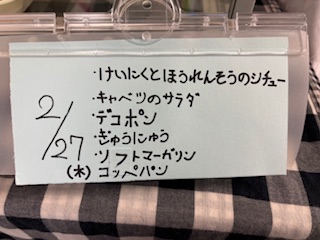 2/27
(木)
・けいにくとほうれんそうのシチュー
・キャベツのサラダ
・デコポン
・ぎゅうにゅう
・ソフトマーガリン
コッペパン